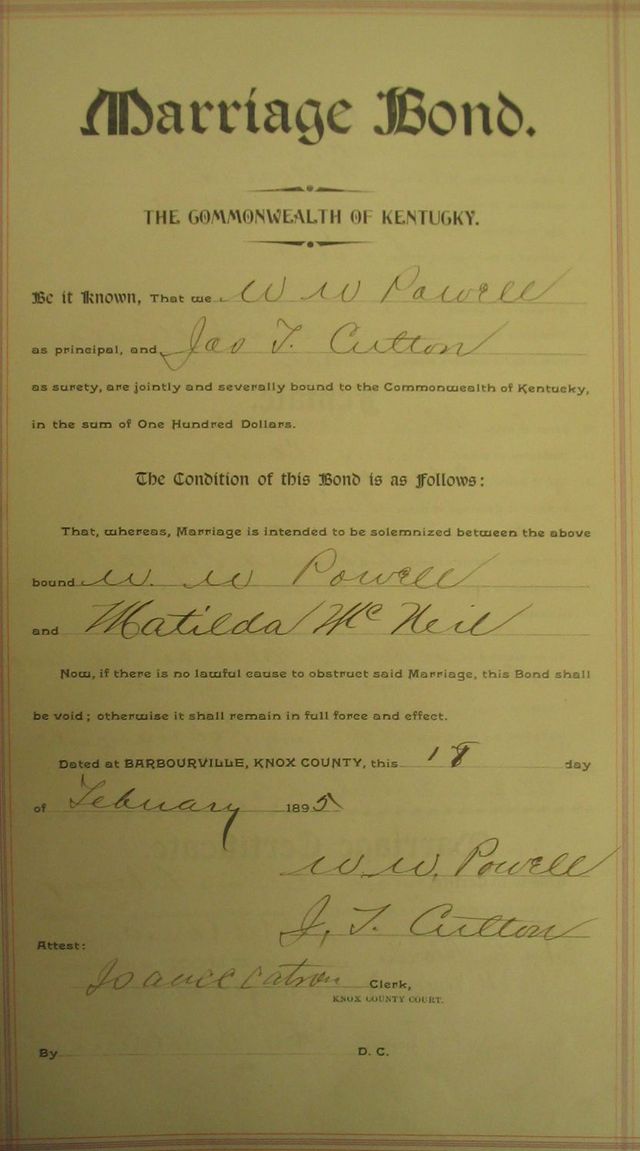 Marriage Bond.
THE COMMONWEALTH OF KENTUCKY.
Be it Known, That we W W Powell
as principal, and Jas T. Cutton
as surety, are jointly and severally bound to the Commonwealth of Kentucky,
in the sum of One Hundred Dollars.
The Condition of this Bond is as Follows:
That, whereas, Marriage is intended to be solemnized between the above
bound W. W Powell
and Matilda Mc Neil
Now, if there is no lawful cause to obstruct said Marriage, this Bond shall
be void; otherwise it shall remain in full force and effect.
Dated at BARBOURVILLE, KNOX COUNTY, this 18 day
of February 1895
W. W. Powell
J. T. Cutton
Attest:
Catron Clerk,
KNOX COUNTY COURT.
By D. C.